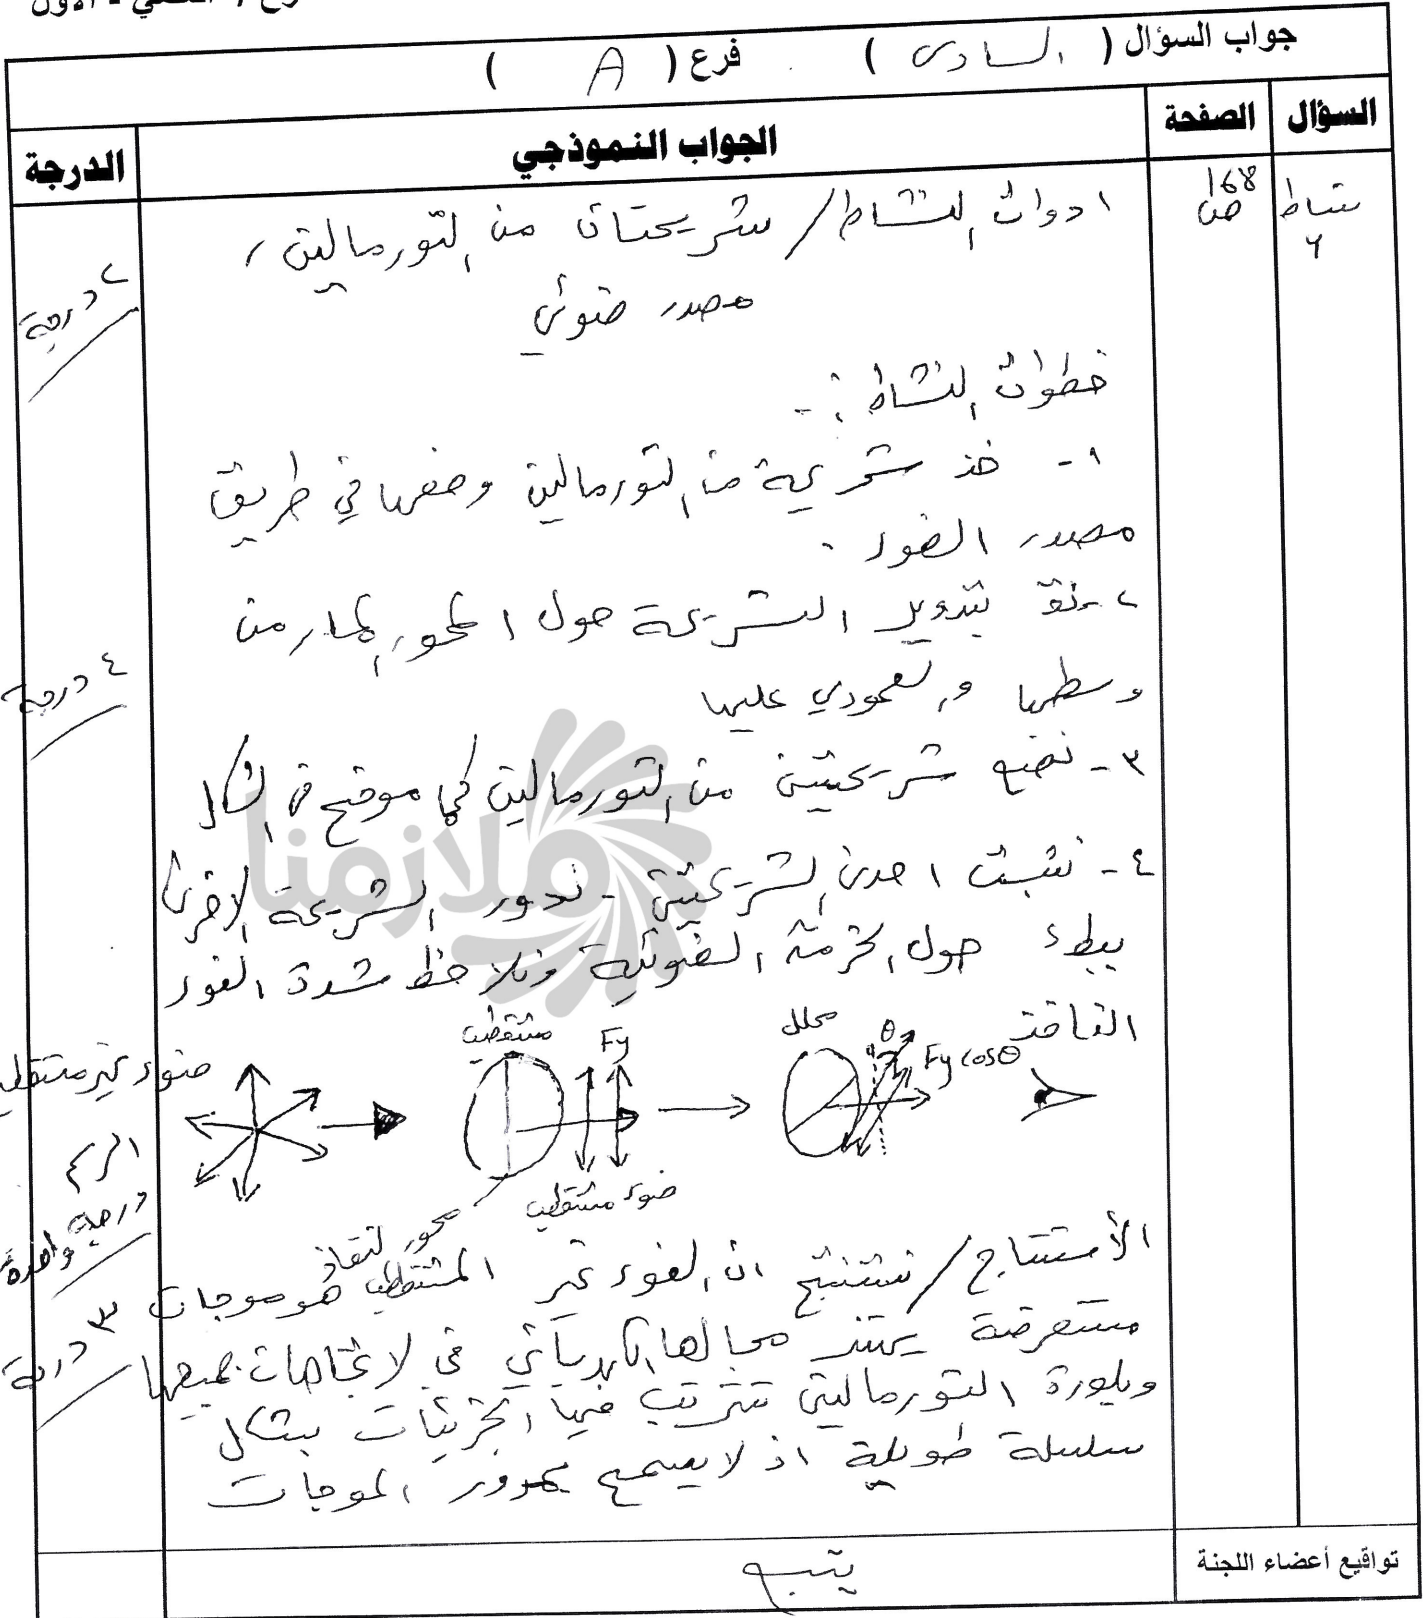 جواب السؤال ( السادس ) فرع ( A )
السؤال الصفحة الجواب النموذجي الدرجة
نشاط ٢
ص 168
ادوات النشاط / شريحتان من التورمالين ،
مصدر ضوئي
٢ درجة
خطوات النشاط :-
١- خذ شريحة من التورمالين وضعها في طريق
مصدر الضوء .
٢- نقو بتدوير الشريحة حول المحور المار من
وسطها والعمودي عليها
٤ درجة
٣- نضع شريحتين من التورمالين كما موضح في الشكل
٤- نثبت احدى الشريحتين - ندور الشريحة الاخرى
ببطء حول الحزمة الضوئية ونلاحظ شدة الضوء
النافذ
ضوء غير مستقطب
مستقطب
Fy
محلل
θ
Fy cosθ
ضوء مستقطب
محور النفاذ
الرسم
درجة واحدة
الأستنتاج / نستنتج ان الضوء غير المستقطب هو موجات
مستعرضة يهتز مجالها الكهربائي في لاتجاهات جميعها
٣ درجة
وبلورة التورمالين تترتب فيها الجزيئات بشكل
سلسلة طويلة اذ لا يسمح بمرور الموجات
تواقيع أعضاء اللجنة
يتبع
ملازمنا